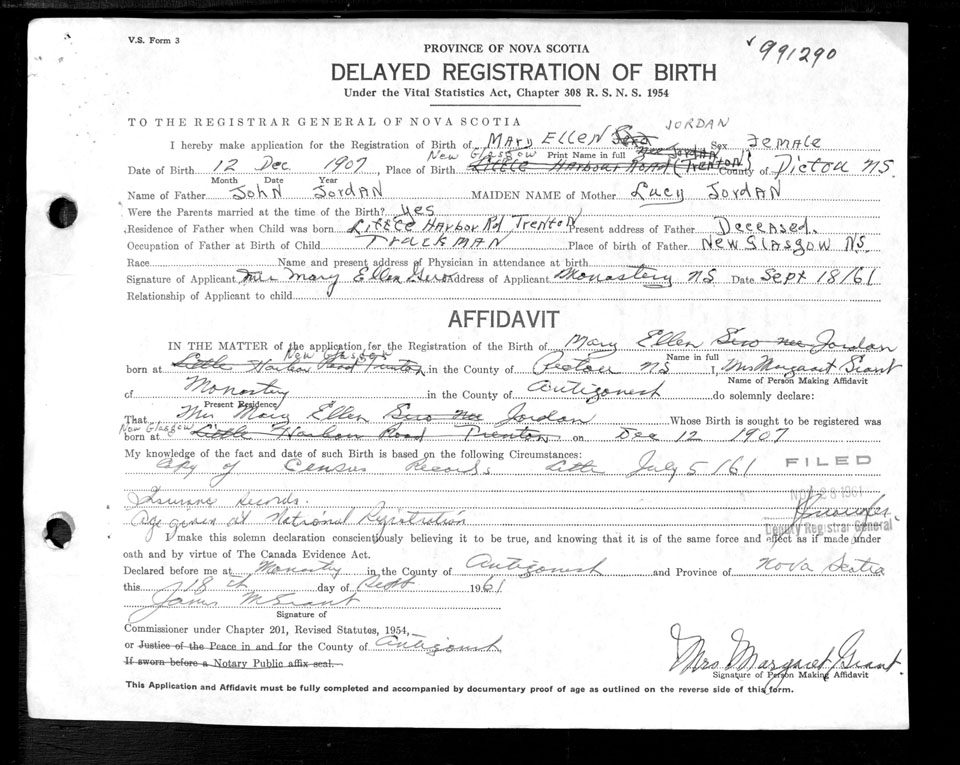 V.S. Form 3
991290
PROVINCE OF NOVA SCOTIA
DELAYED REGISTRATION OF BIRTH
Under the Vital Statistics Act, Chapter 308 R. S. N. S. 1954
TO THE REGISTRAR GENERAL OF NOVA SCOTIA
JORDAN
I hereby make application for the Registration of Birth of MARY ELLEN Sex FEMALE
New Glasgow Print Name in full nee JORDAN
Date of Birth 12 Dec 1907 Place of Birth Little Harbour Road (Trenton) County of Pictou NS.
Month Date Year
Name of Father JOHN JORDAN MAIDEN NAME of Mother Lucy JORDAN
Were the Parents married at the time of the Birth? yes
Residence of Father when Child was born Little Harbor Rd Trenton Present address of Father Deceased.
Occupation of Father at Birth of Child TrackMAN Place of birth of Father New Glasgow N.S.
Race Name and present address of Physician in attendance at birth
Signature of Applicant Mary Ellen Address of Applicant Monastery NS Date Sept 18/61
Relationship of Applicant to child
AFFIDAVIT
IN THE MATTER of the application for the Registration of the Birth of Mary Ellen nee Jordan
New Glasgow Name in full
born at Little Harbour Road Trenton in the County of Pictou NS I, Mrs Margaret Grant
Name of Person Making Affidavit
of Monastery in the County of Antigonish do solemnly declare:
Present Residence
That Mrs Mary Ellen nee Jordan Whose Birth is sought to be registered was
New Glasgow
born at Little Harbour Road Trenton on Dec 12 1907
My knowledge of the fact and date of such Birth is based on the following Circumstances:
Copy of Census Records July 5/61 FILED
NOV 28 1961
Insurance Records.
Age given at National Registration
Deputy Registrar General
I make this solemn declaration conscientiously believing it to be true, and knowing that it is of the same force and effect as if made under
oath and by virtue of The Canada Evidence Act.
Declared before me at Monastery in the County of Antigonish and Province of Nova Scotia
this 18th day of Sept 1961
James M Grant
Signature of
Commissioner under Chapter 201, Revised Statutes, 1954,
or Justice of the Peace in and for the County of Antigonish
If sworn before a Notary Public affix seal.
Mrs Margaret Grant.
Signature of Person Making Affidavit
This Application and Affidavit must be fully completed and accompanied by documentary proof of age as outlined on the reverse side of this form.